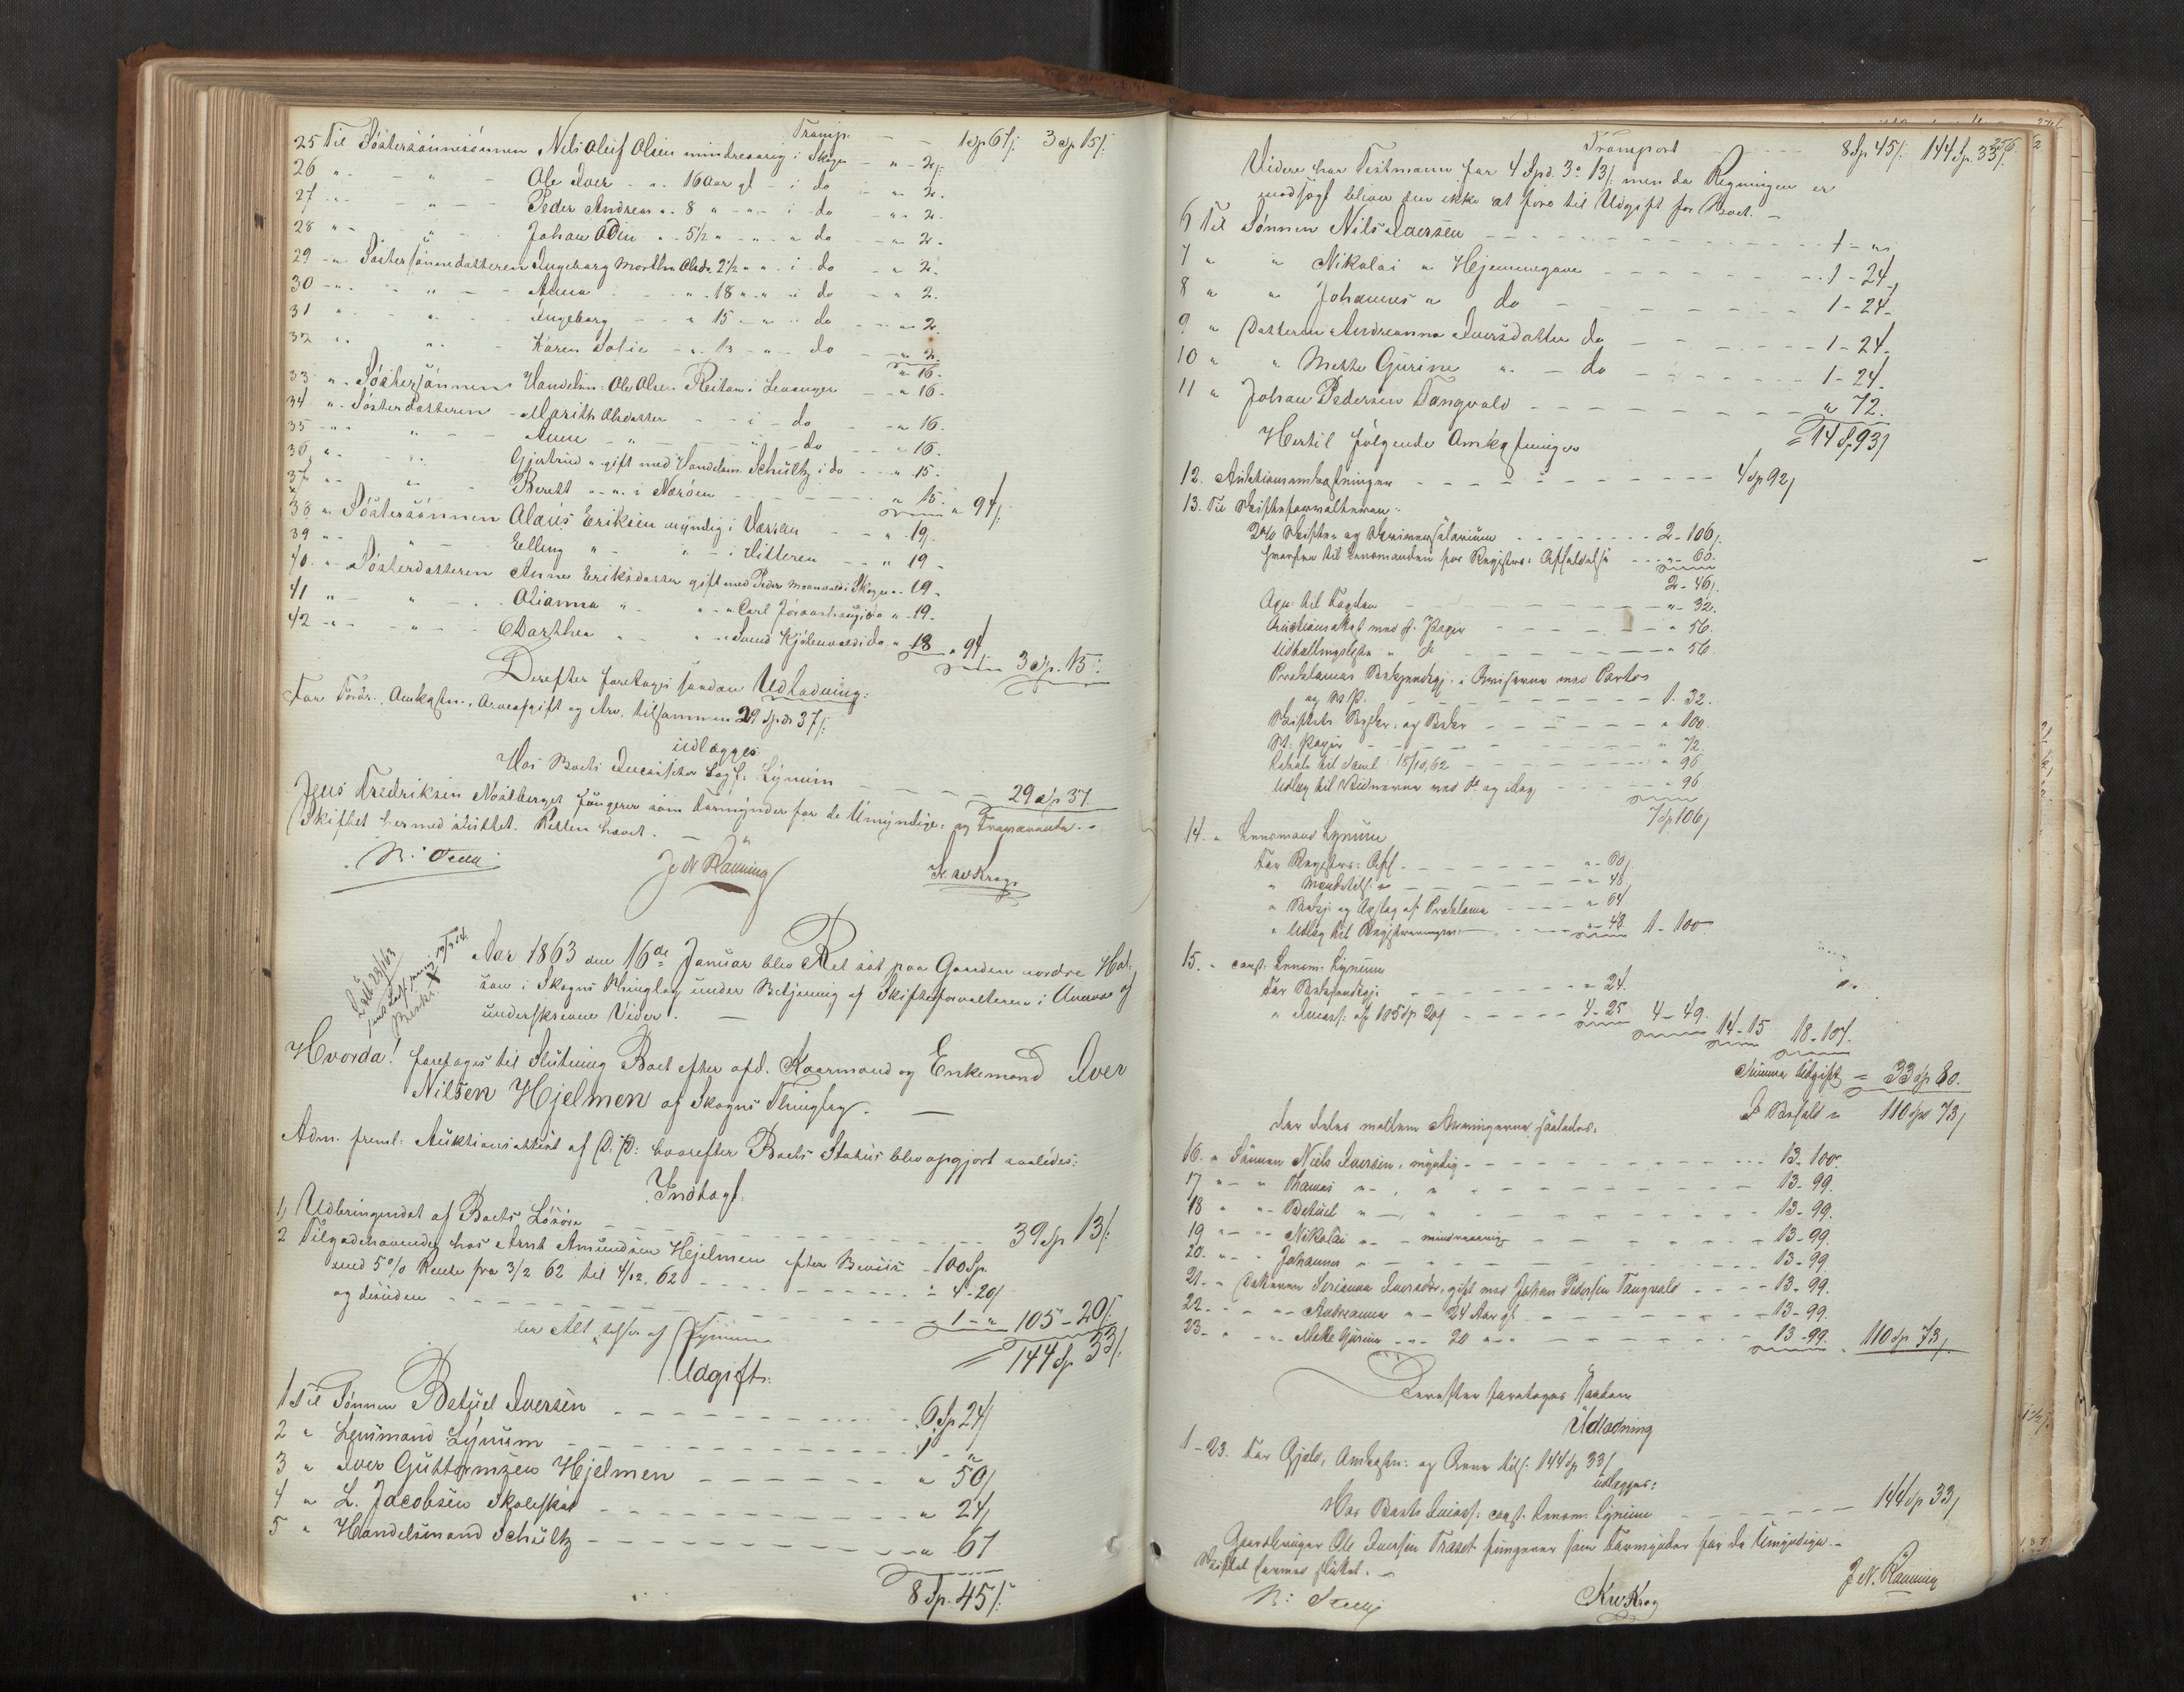 Transp. - - 1 Sp 67 /: 3 Sp 15 /:
25 Til Söstersönnesönnen Nils Oluf Olsen mindreaarig i Skogn - " - 2 /:
26 " - " - Ole Iver - " - 16 Aar gl - i do - " - 2.
27 " - " - Peder Andreas " - 8 " - " - i do - " - 2.
28 " - " - Johan Odin " - 5 1/2 " - " - " do - " - 2.
29 " Söstersönnedatteren Ingeborg Martha Olsdr. 2 1/2 " " - i - do - " 2.
30 " - " - Anna - " - 18 " - " - i do - " 2.
31 " - " - Ingeborg - " 15 - " - " do - " 2.
32 " - " - Karen Sofie - " - 13 - " - do - " 2.
" 16.
33 " Söstersönnen Handelsm. Ole Olsen Reitan i Levanger - " 16.
34 " Sösterdatteren Marith Olsdatter - i - do - " 16.
35 " - " - Anne - " - do - " 16.
36 " - " Gjertrud " gift med Handelsm. Schultz i do - " 15.
37 " - " Berett " - " i Næröen - " 15. " 94 /:
38 " Söstersönnen Olaus Eriksen myndig i Værran - " 19.
39 " - " - Elling " - " - i Hitteren - " 19.
40 " Sösterdatteren Anne Eriksdatter gift med Peder i Skogn " 19.
41 " - " - Olianna " - " - " Carl i do " 19.
42 " - " - Barthea " - " Svend i do " 18 " 94.
3 Sp. 15 /:
Derefter foretoges saadan Udlodning:
For Omkostn., Arveafgift og Arv, tilsammen 29 Spd 37 /:
udlægges:
Hos Boets Incassator Lynum - - - 29 Sp 37.
Jens Fredriksen Nöstberget fungerer som Formynder for de Umyndige og Fraværende.
Skiftet hermed sluttet. Retten hævet. -
J. N. Ranning K. W. Krog

Aar 1863 den 16de Januar blev Ret sat paa Gaarden nordre
i Skogns Thinglag under Betjening af Skifteforvalteren i Overvær af
underskrevne Vidner. -
Hvorda! foretoges til Slutning Boet efter afd. Kaarmand og Enkemand Iver
Nilsen Hjelmen af Skogns Thinglag. -
Adm. freml: Auktionsattest af D: D: hvorefter Boets Status blev opgjort saaledes:
Indtægt:
1, Udbringendet af Boets Lösöre - - - 39 Sp 13 /:
2 Tilgodehavende hos Arnt Amundsen Hjelmen efter Beviis - 100 Sp
med 5% Rente fra 3/2 62 til 4/12. 62 - - - " 4 - 20 /
og desuden - - - 1 - " 105 - 20 /:
= 144 Sp 33 /:
Udgift:
1 Til Sönnen Betuel Iversen - - - 6 Sp 24 /
2 " Lensmand Lynum - - - 1 - "
3 " Iver Guttormsen Hjelmen - - - " 50 /
4 " L. Jacobsen Skoleskat - - - " 24 /
5 " Handelsmand Schultz - - - " 67
8 Sp. 45 /:

256.
Transport - - 8 Sp 45 /: 144 Sp 33 /:
Videre har Testmann for 4 Spd. 3 13 /: men da Regningen er
modsagt bliver den ikke at före til Udgift for Boet. -
6 Til Sönnen Nils Iversen - - - 1 - "
7 " " Nikolai " Hjemmegave - - - 1 - 24
8 " " Johannes " do - - - 1 - 24
9 " Datteren Andreanna Iversdatter do - - - 1 - 24
10 " " Mette Gurine " - do - - - 1 - 24.
11 " Johan Pedersen Tangvald - - - " 72.
= 14 Sp 93 /
Hertil fölgende Omkostninger
12. Auktionsomkostninger - - - 4 Sp 92 /
13. Til Skifteforvalteren:
2% Skifte- og Skriversalarium - - - 2 - 106 /.
til Lensmanden for Registr: - - " 60.
2 - 46 /.
til Fogden - - - " 32.
Auctions med st. Papir - - - " 56.
Udlodnings " do - - - " 56.
Proklamas Bekjendtgj. i Aviserne med Porto
og - - - 1. 32.
" 100.
St. Papir - - - " 72.
15/10, 62 - - - " 96
Udlæg til Vidnerne - - - " 96
7 Sp 106 /
14. " Lensmand Lynum
For Registr: - - - " 60 /.
" - - - " 48
" og Opslag af Proklama - - - " 64
" Udlæg til Registreringen - - - " 48 1 - 100
15. " const. Lensm. Lynum
For - - - " 24.
" Incass: af 105 Sp 20 / - - - 4 - 25 4 - 49. 14 - 15 18 - 107.
Summa Udgift = 33 Sp 80.
I Behold = 110 Spd 73 /
der deles mellem Arvingerne saaledes:
16. " Sönnen Niels Iversen, myndig - - - 13 - 100.
17 " - " Thomas " - " - - - 13 - 99.
18 " " Betuel " - " - - - 13 - 99.
19 " - " Nikolai " - mindreaarig - - - 13 - 99.
20. " - " Johannes " - - - 13 - 99
21. " Datteren Serianna Iversdtr, gift med Johan Pedersen Tangvald - - - 13 - 99.
22. " - " Andreanna " - 24 Aar gl. - - - 13 - 99.
23. " " Mette Gurine " - 20 " - - - 13 - 99. 110 Sp 73 /.
Derefter foretoges saadan
Udlodning
1 - 23. For Gjeld, Omkostn. og Arv tils. 144 Sp 33 /
udlægges:
Hos Boets Incass. const. Lensm. Lynum - - - 144 Sp 33 /
Gaardbruger Ole Iversen fungerer som Formynder for de Umyndige. -
Skiftet hermed sluttet. -
K W Krog J. N. Ranning